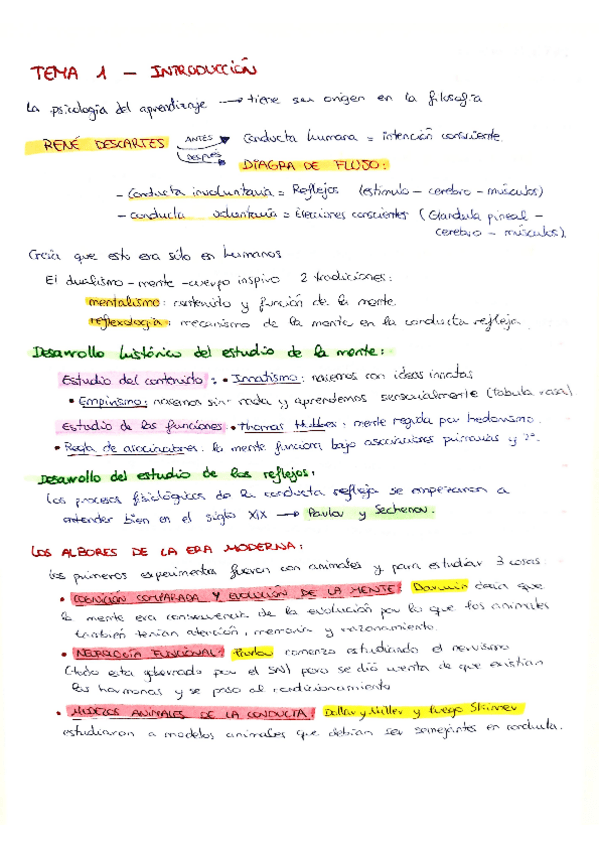 TEMA 1 – INTRODUCCIÓN
La psicología del aprendizaje → tiene su origen en la filosofía
RENÉ DESCARTES ANTES → Conducta humana = intención consciente.
DESPUÉS → DIAGRA DE FLUJO:
– Conducta involuntaria = Reflejos (estímulo – cerebro – músculos)
– conducta voluntaria = Elecciones conscientes (Glándula pineal –
cerebro – músculos).
Creía que esto era sólo en humanos
El dualismo – mente – cuerpo inspiro 2 tradiciones:
mentalismo: contenido y función de la mente.
reflexología: mecanismo de la mente en la conducta refleja.
Desarrollo histórico del estudio de la mente:
Estudio del contenido: • Innatismo: nacemos con ideas innatas
• Empirismo: nacemos sin nada y aprendemos sensorialmente (tabula rasa)
Estudio de las funciones • Thomas Hobbes: mente regida por hedonismo.
• Regla de asociaciones: la mente funciona bajo asociaciones primarias y 2ª.
Desarrollo del estudio de los reflejos:
Los procesos fisiológicos de la conducta refleja se empezaron a
entender bien en el siglo XIX → Pavlov y Sechenov.
LOS ALBORES DE LA ERA MODERNA:
Los primeros experimentos fueron con animales y para estudiar 3 cosas:
• COGNICIÓN COMPARADA Y EVOLUCIÓN DE LA MENTE: Darwin decía que
la mente era consecuencia de la evolución por lo que los animales
también tenían atención, memoria y razonamiento.
• NEUROLOGÍA FUNCIONAL: Pavlov comenzó estudiando el nervismo
(todo esta gobernado por el SN) pero se dió cuenta de que existían
las hormonas y se paso al condicionamiento
• MODELOS ANIMALES DE LA CONDUCTA: Dollar y Miller y luego Skinner
estudiaron a modelos animales que debían ser semejantes en conducta.